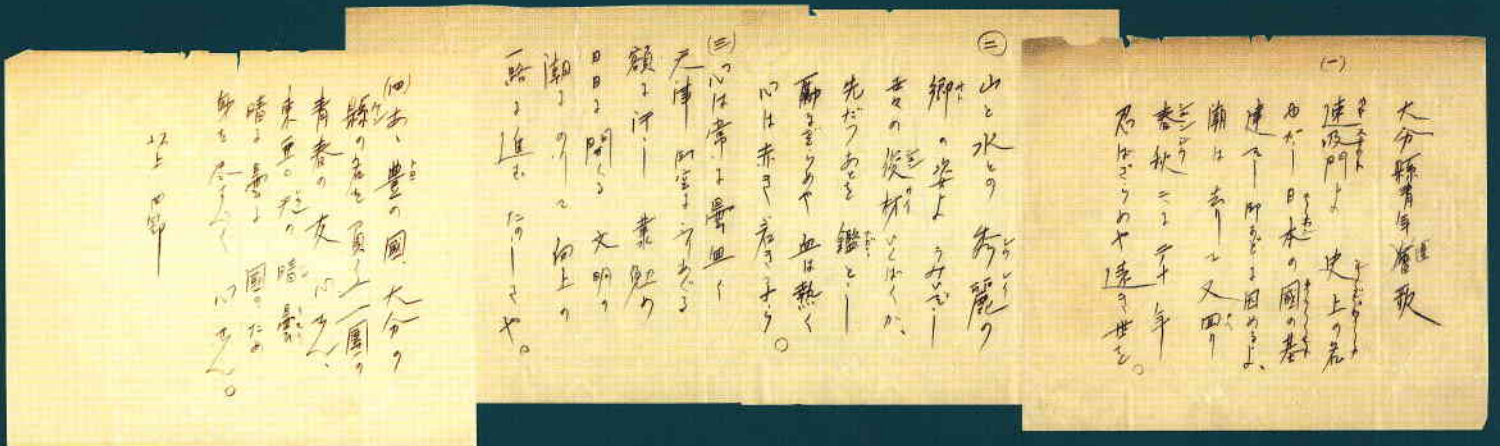 大分縣青年團歌
(一)
速吸門よ 史上の名
日本の國の基
建てし 固めるよ、
潮は去りて又回り
春秋二千年
思はざらめや遠き世を。
(二)
山と水との秀麗の
郷の姿よ うみいでし
世々の俊材いくばくか、
先だつあとを 鑑とし
勵まざらめや血は熱く
心は赤き若きまら。
(三)
心は常に
天津 御空にうちあぐる
額に汗し 業勉め
日日に開くる 文明の
潮にのりて向上の
一路に進む たのしさや。
(四)
あゝ豊の國、大分の
縣の名を頂く一團の
青春の友 心せん、
東亜の 晴曇
晴に曇に 國のため
身を尽すべく 心せん。
以上四節